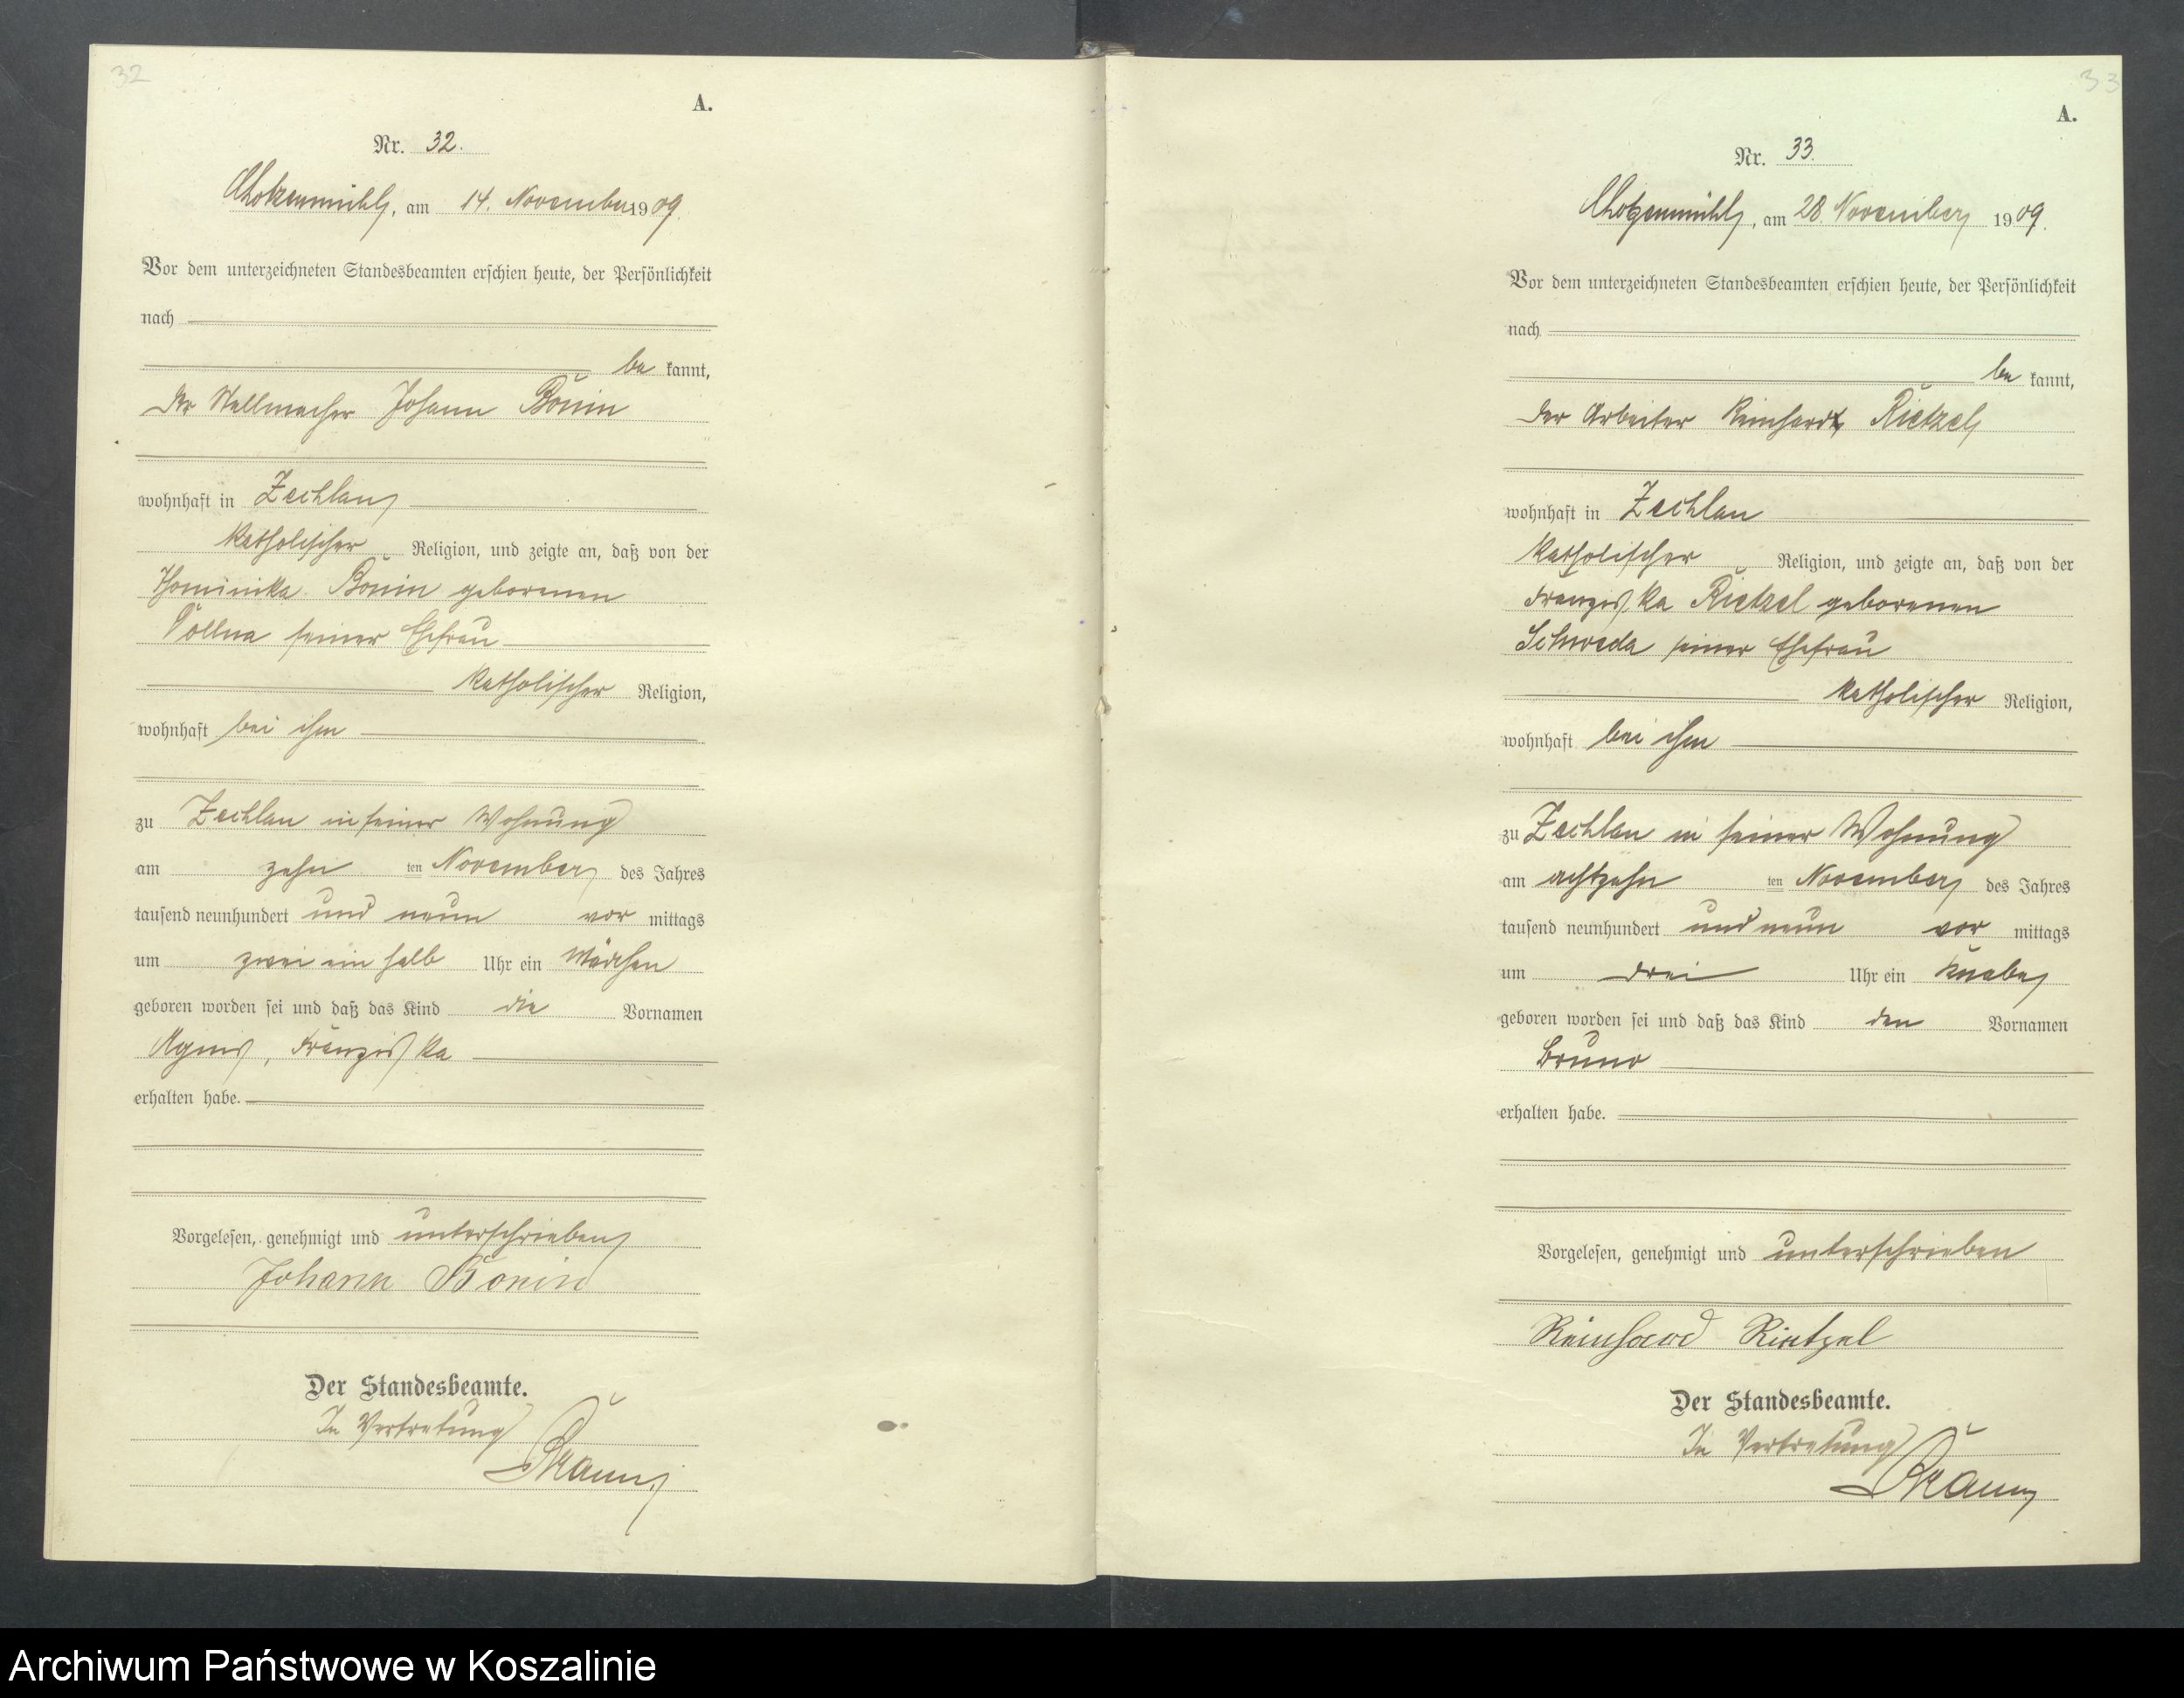 32
A.
Nr. 32.
Chotzenmühl, am 14. November 1909.
Vor dem unterzeichneten Standesbeamten erschien heute, der Persönlichkeit
nach
be kannt,
der Stellmacher Johann Bonin
wohnhaft in Zechlau
katholischer Religion, und zeigte an, daß von der
Dominika Bonin geborenen
seiner Ehefrau
katholischer Religion,
wohnhaft bei ihm
zu Zechlau in seiner Wohnung
am zehn ten November des Jahres
tausend neunhundert und neun vor mittags
um zwei ein halb Uhr ein Mädchen
geboren worden sei und daß das Kind die Vornamen
Agnes, Franziska
erhalten habe.
Vorgelesen, genehmigt und unterschrieben
Johann Bonin
Der Standesbeamte.
In Vertretung
33
A.
Nr. 33.
Chotzenmühl, am 28. November 1909.
Vor dem unterzeichneten Standesbeamten erschien heute, der Persönlichkeit
nach
be kannt,
der Arbeiter Reinhard Rietzel
wohnhaft in Zechlau
katholischer Religion, und zeigte an, daß von der
Franziska Rietzel geborenen
Schweda seiner Ehefrau
katholischer Religion,
wohnhaft bei ihm
zu Zechlau in seiner Wohnung
am achtzehn ten November des Jahres
tausend neunhundert und neun vor mittags
um drei Uhr ein Knabe
geboren worden sei und daß das Kind den Vornamen
Bruno
erhalten habe.
Vorgelesen, genehmigt und unterschrieben
Reinhard Rietzel
Der Standesbeamte.
In Vertretung
Archiwum Państwowe w Koszalinie